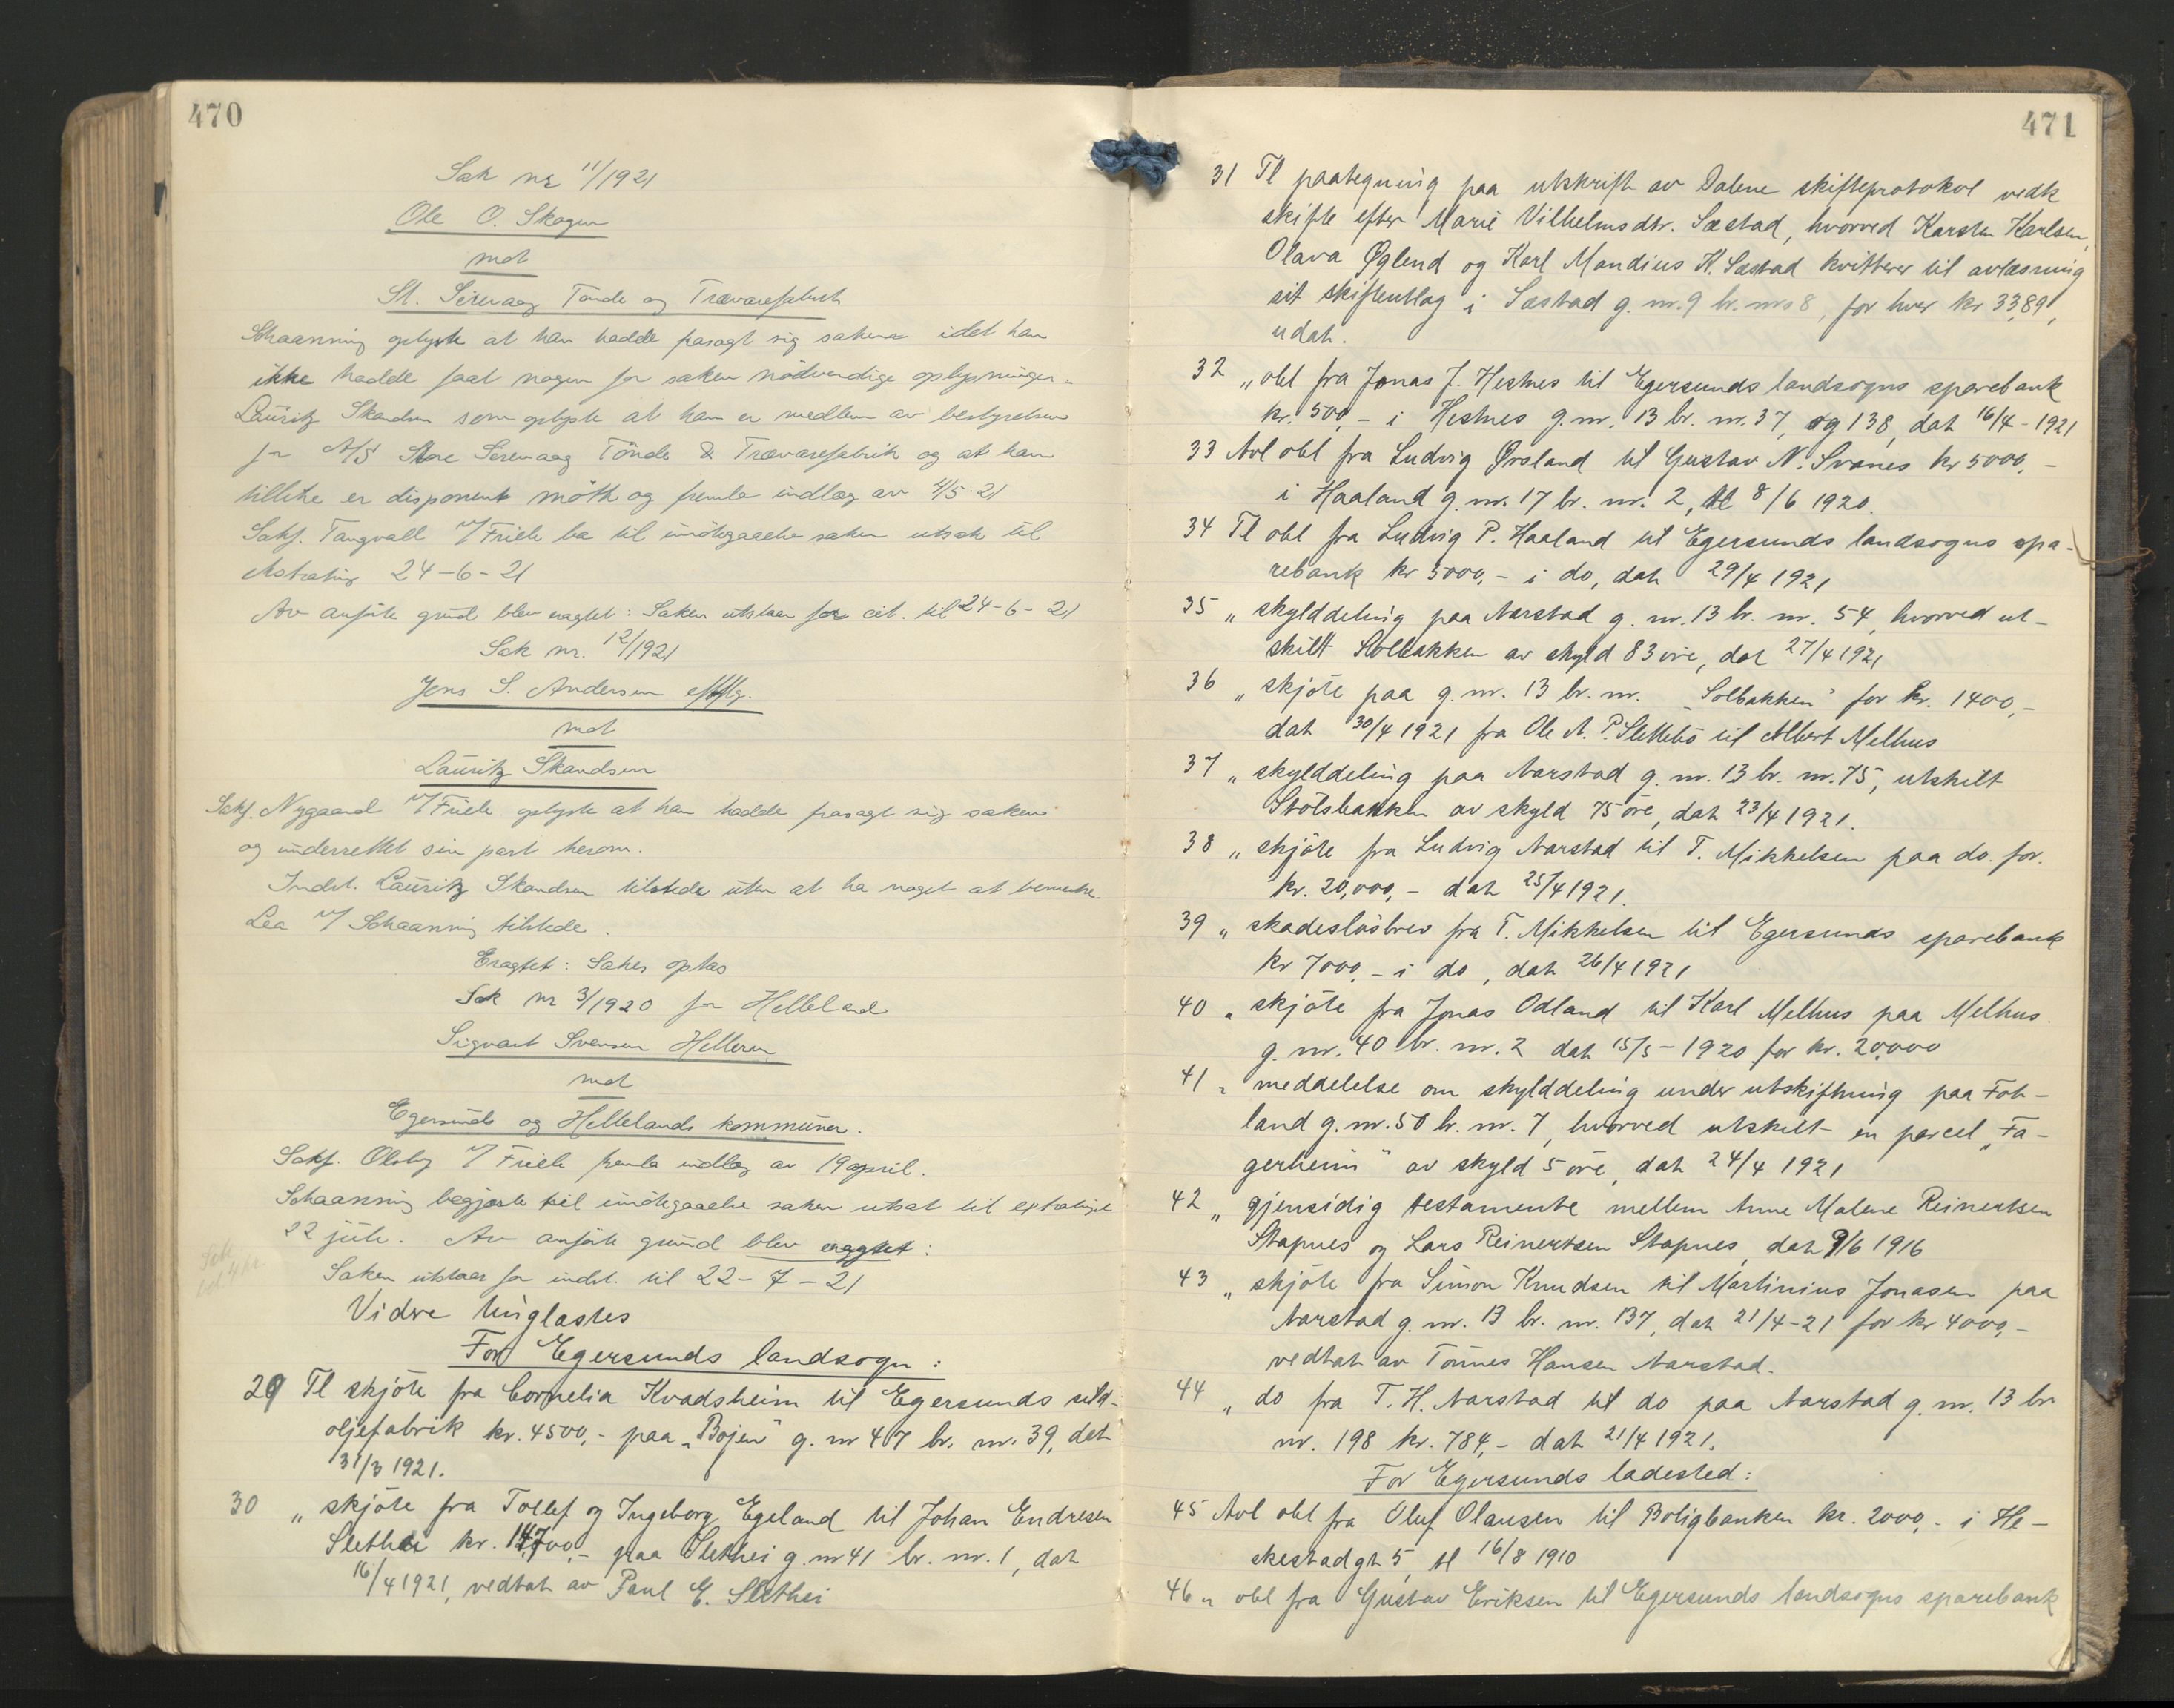 470
Sak nr 11/1921
Ole O. Skogen
mot
St. Sirevaag Tønde og Trævarefabrik
Schaanning oplyste at han hadde frasagt sig saken idet han
ikke hadde faat nogen for saken nödvendige oplysninger.
Lauritz Skandsen som oplyste at han er medlem av bestyrelsen
for A/S Store Sirevaag Tönde & Trævarefabrik og at han
tillike er disponent mötte og fremla indlæg av 4/5-21
Sakf. Tangvall v/ Friele ba til imötegaaelse saken utsat til
24-6-21
Av anførte grund blev eragtet: Saken utstaar for cit. til 24-6-21
Sak nr. 12/1921
Jens S. Andersen efflg.
mot
Lauritz Skandsen
Sakf. Nygaard v/ Friele oplyste at han hadde frasagt sig saken
og underrettet sin part herom.
Indst. Lauritz Skandsen tilstede uten at ha noget at bemerke.
Lea v/ Schaanning tilstede.
Eragtet: Saken optas
Sak nr 3/1920 for Helleland
Sigvart Svensen Helleren
mot
Egersunds og Hellelands kommuner.
Sakf. Olsby v/ Friele fremla indlæg av 19 april.
Schaanning begjærte til imötegaaelse saken utsat til extrating
22 juli. Av anførte grund blev eragtet:
Saken utstaar for indst. til 22-7-21
Vidre tinglæstes
For Egersunds landsogn:
29 Tl skjöte fra Cornelia Kvadsheim til Egersunds sild-
oljefabrik kr. 4500,- paa „Bojen" g. nr 47 br. nr. 39, dat
31/3 1921.
30 „ skjöte fra Tollef og Ingeborg Egeland til Johan Endresen
Slethei kr. 14700,- paa Slethei g. nr 41 br. nr. 1, dat
16/4 1921, vedtat av Paul E. Slethei
471
31 Tl paategning paa utskrift av Dalene skifteprotokol vedk
skifte efter Marie Vilhelmsdtr. Sæstad, hvorved Karsten Karlsen,
Olava Øglend og Karl Mandius K. Sæstad kvitterer til avlæsning
sit skifteutlæg i Sæstad g. nr. 9 br. nr. 8, for hver kr 33,89,
udat.
32 „ obl fra Jonas J. Hestnes til Egersunds landsogns sparebank
kr. 500,- i Hestnes g. nr. 13 br. nr. 37, og 138, dat 16/4-1921
33 Avl obl fra Ludvig Ørsland til Gustav N. Svanes kr 5000,-
i Haaland g. nr. 17 br. nr. 2, tl 8/6 1920.
34 Tl obl fra Ludvig P. Haaland til Egersunds landsogns spa-
rebank kr 5000,- i do, dat 29/4 1921
35 „ skylddeling paa Aarstad g. nr. 13 br. nr. 54, hvorved ut-
skilt Solbakken av skyld 83 öre, dat 27/4 1921
36 „ skjöte paa g. nr. 13 br. nr. „Solbakken" for kr. 1400,-
dat 30/4 1921 fra Ole A. P. Slettebö til Albert Melhus
37 „ skylddeling paa Aarstad g. nr. 13 br. nr. 75, utskilt
Stölsbakken av skyld 75 öre, dat 23/4 1921.
38 „ skjöte fra Ludvig Aarstad til T. Mikkelsen paa do. for.
kr. 20,000,- dat 25/4 1921.
39 „ skadeslösbrev fra T. Mikkelsen til Egersunds sparebank
kr 7000,- i do, dat 26/4 1921
40 „ skjöte fra Jonas Odland til Karl Melhus paa Melhus
g. nr. 40 br. nr. 2 dat 15/5-1920 for kr. 20,000
41 „ meddelelse om skylddeling under utskiftning paa Fot-
land g. nr. 50 br. nr. 7, hvorved utskilt en parcel „Fa-
gerheim" av skyld 5 öre, dat 24/4 1921
42 „ gjensidig testamente mellem Anne Malene Reinertsen
Stapnes og Lars Reinertsen Stapnes, dat 9/6 1916
43 „ skjöte fra Simon Knudsen til Martinius Jonasen paa
Aarstad g. nr. 13 br. nr. 137, dat 21/4-21 for kr 4000,-
vedtat av Tönnes Hansen Aarstad.
44 „ do fra T. H. Aarstad til do paa Aarstad g. nr. 13 br
nr. 198 kr. 784,- dat 21/4 1921.
For Egersunds ladested:
45 Avl obl fra Oluf Olausen til Boligbanken kr. 2000,- i He-
skestadgt 5, tl 16/8 1910
46 „ obl fra Gustav Eriksen til Egersunds landsogns sparebank